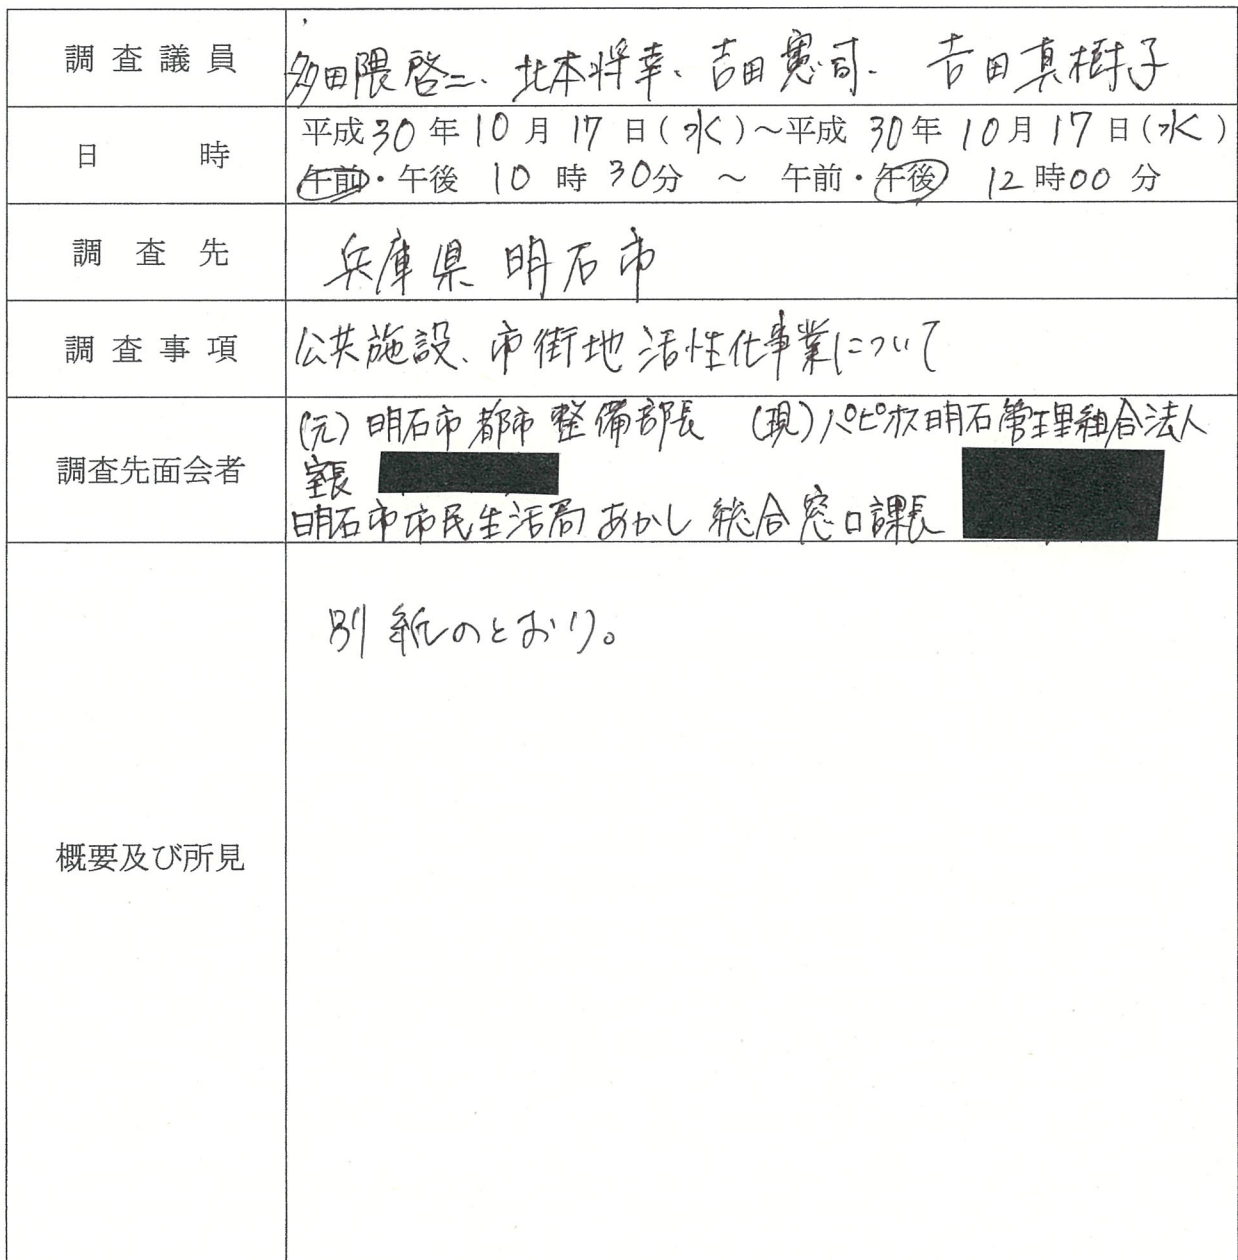 調査議員
多田隈啓二、北本将幸、吉田憲司、吉田真樹子
日時
平成30年10月17日(水)～平成30年10月17日(水)
午前・午後 10時30分 ～ 午前・午後 12時00分
調査先
兵庫県 明石市
調査事項
公共施設、市街地活性化事業について
調査先面会者
(元)明石市都市整備部長 (現)パピオス明石管理組合法人
室長
明石市市民生活局あかし総合窓口課長
概要及び所見
別紙のとおり。